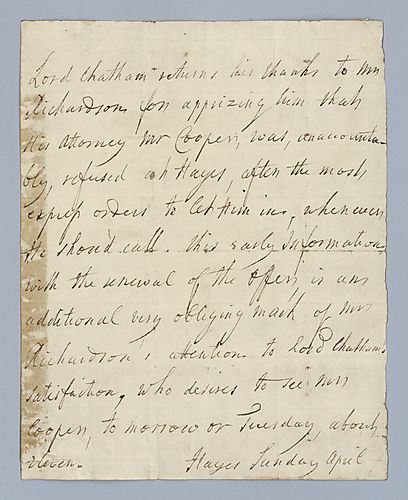 Lord Chatham returns his thanks to Mr
Richardson for apprizing him that
His Attorney Mr Cooper, was, unaccounta-
bly, refused at Hayes, after the most
express orders to let Him in, whenever
He shou'd call. this early Information,
with the renewal of the offer, is an
additional very obliging mark of Mr
Richardson's attention to Lord Chatham's
satisfaction, who desires to see Mr
Cooper, to morrow or Tuesday, about
eleven. Hayes Sunday April